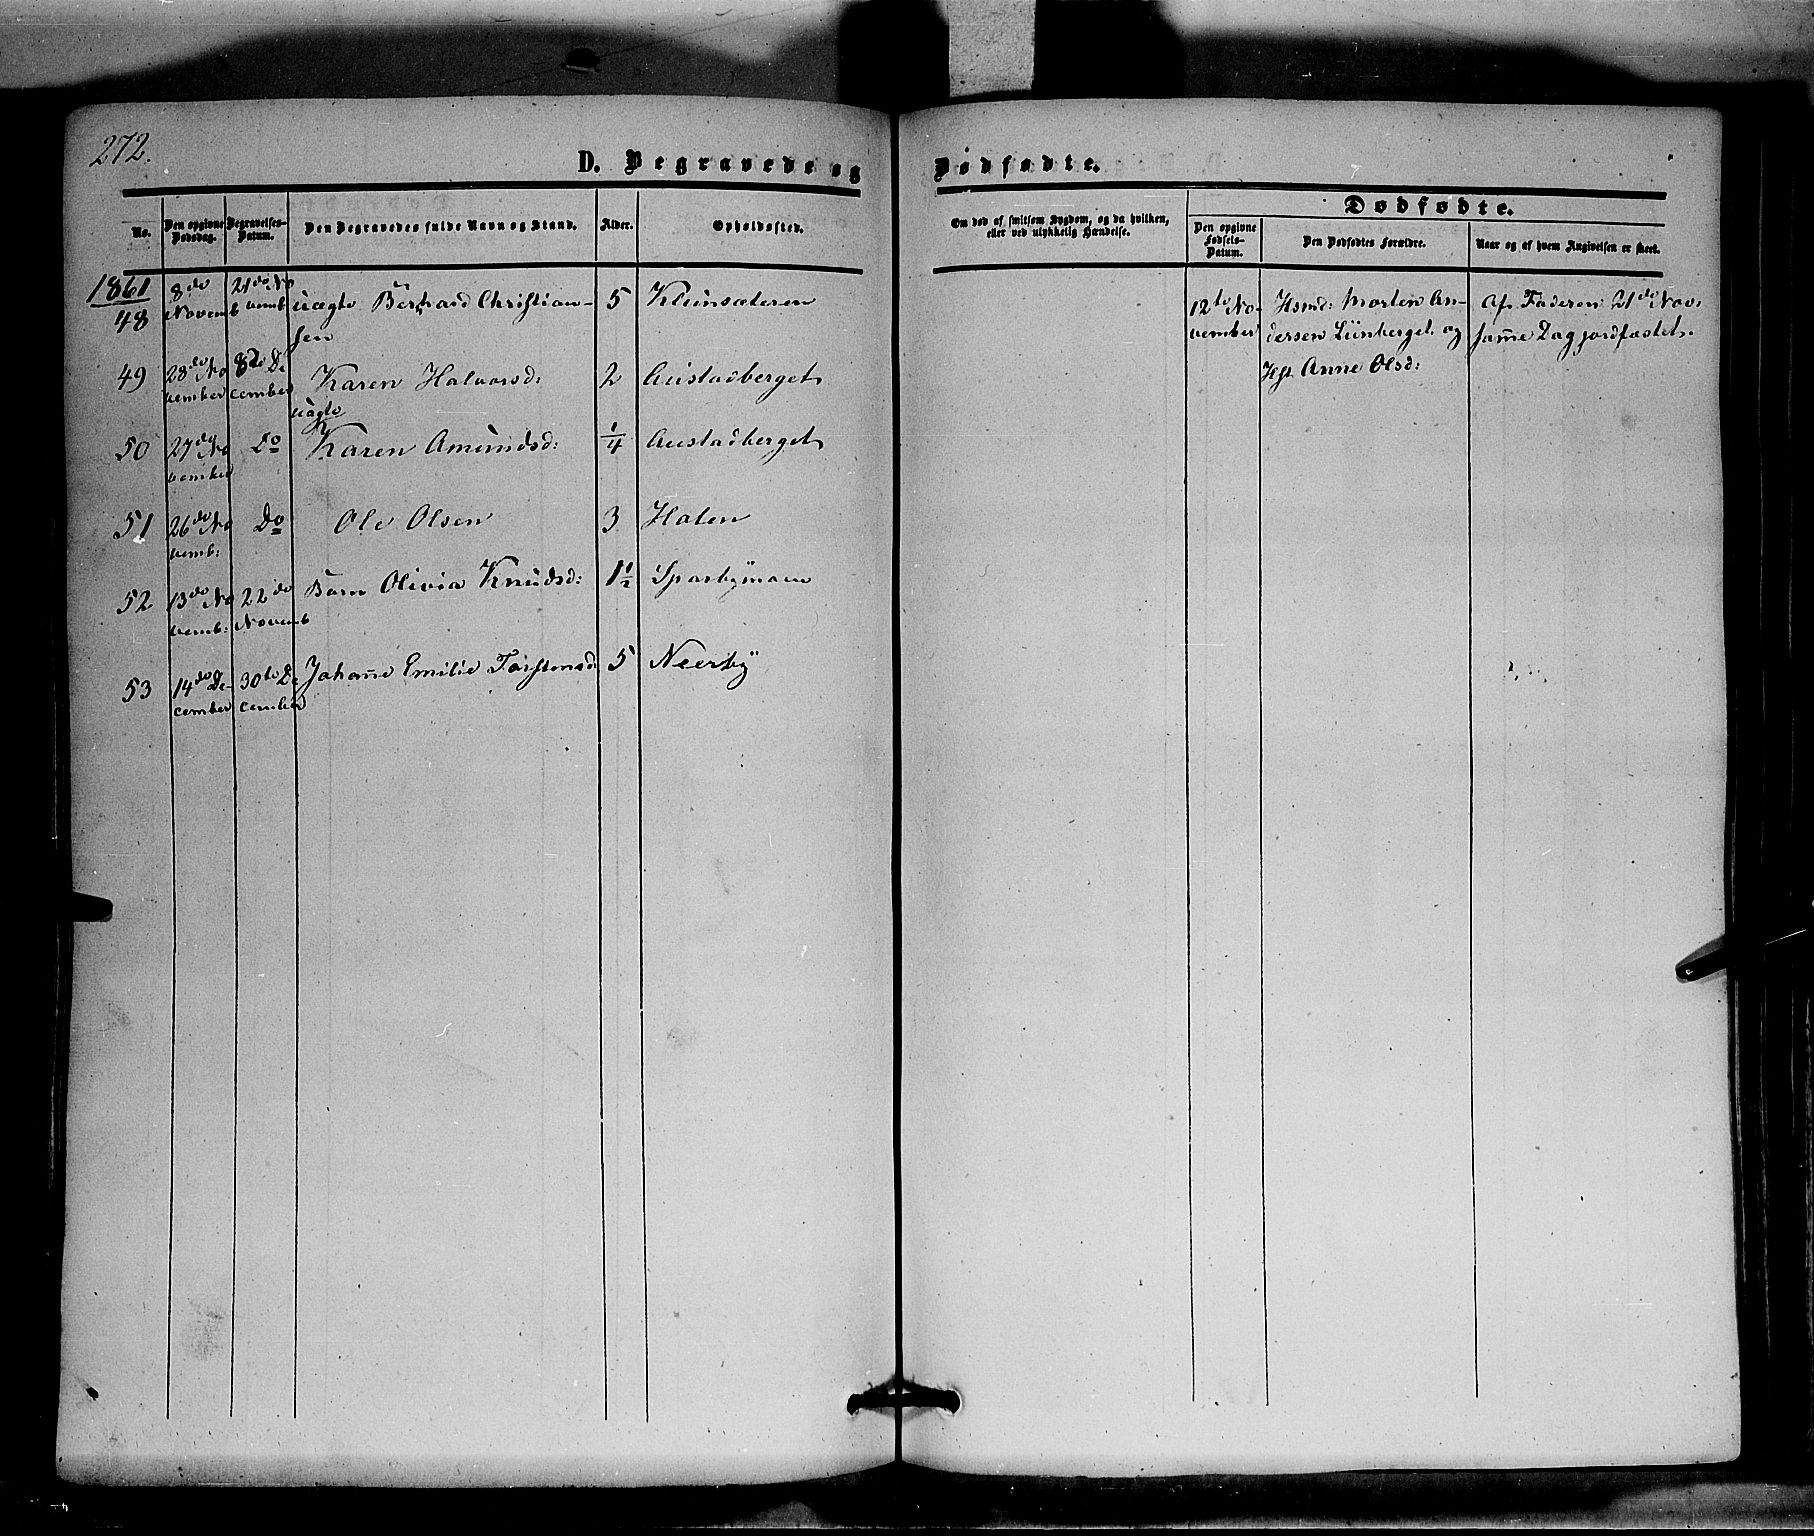 272.
D. Begravede og
Dødfødte.
No.
Den opgivne Dødsdag.
Begravelses-Datum.
Den Begravedes fulde Navn og Stand.
Alder.
Opholdssted.
Om død af smitsom Sygdom, og da hvilken,
eller ved ulykkelig Hændelse.
Dødfødte.
Den opgivne Fødsels-Datum.
Den Dødfødtes Forældre.
Naar og af hvem Angivelsen er skeet.
1861
48 8de Novemb 21de Novemb uægte Bernhard Christian- 5
sen
49 28de November 8de December Karen Halvorsd: 2 Austadberget
uægte
50 27de November Do Karen Amundsd: 1/4 Austadberget
51 26de Novemb: Do Ole Olsen 3
52 13de Novemb: 22de Novemb Barn Olivia Knudsd: 1 1/2
53 14de December 30te December Johanne Emilie Torstensd: 5 Neerby
12te No- Hsmd: Morten An- Af Faderen 21de Nov.
vember dersen Lünberget og samme Dag jordfæstet.
Anne Olsd: